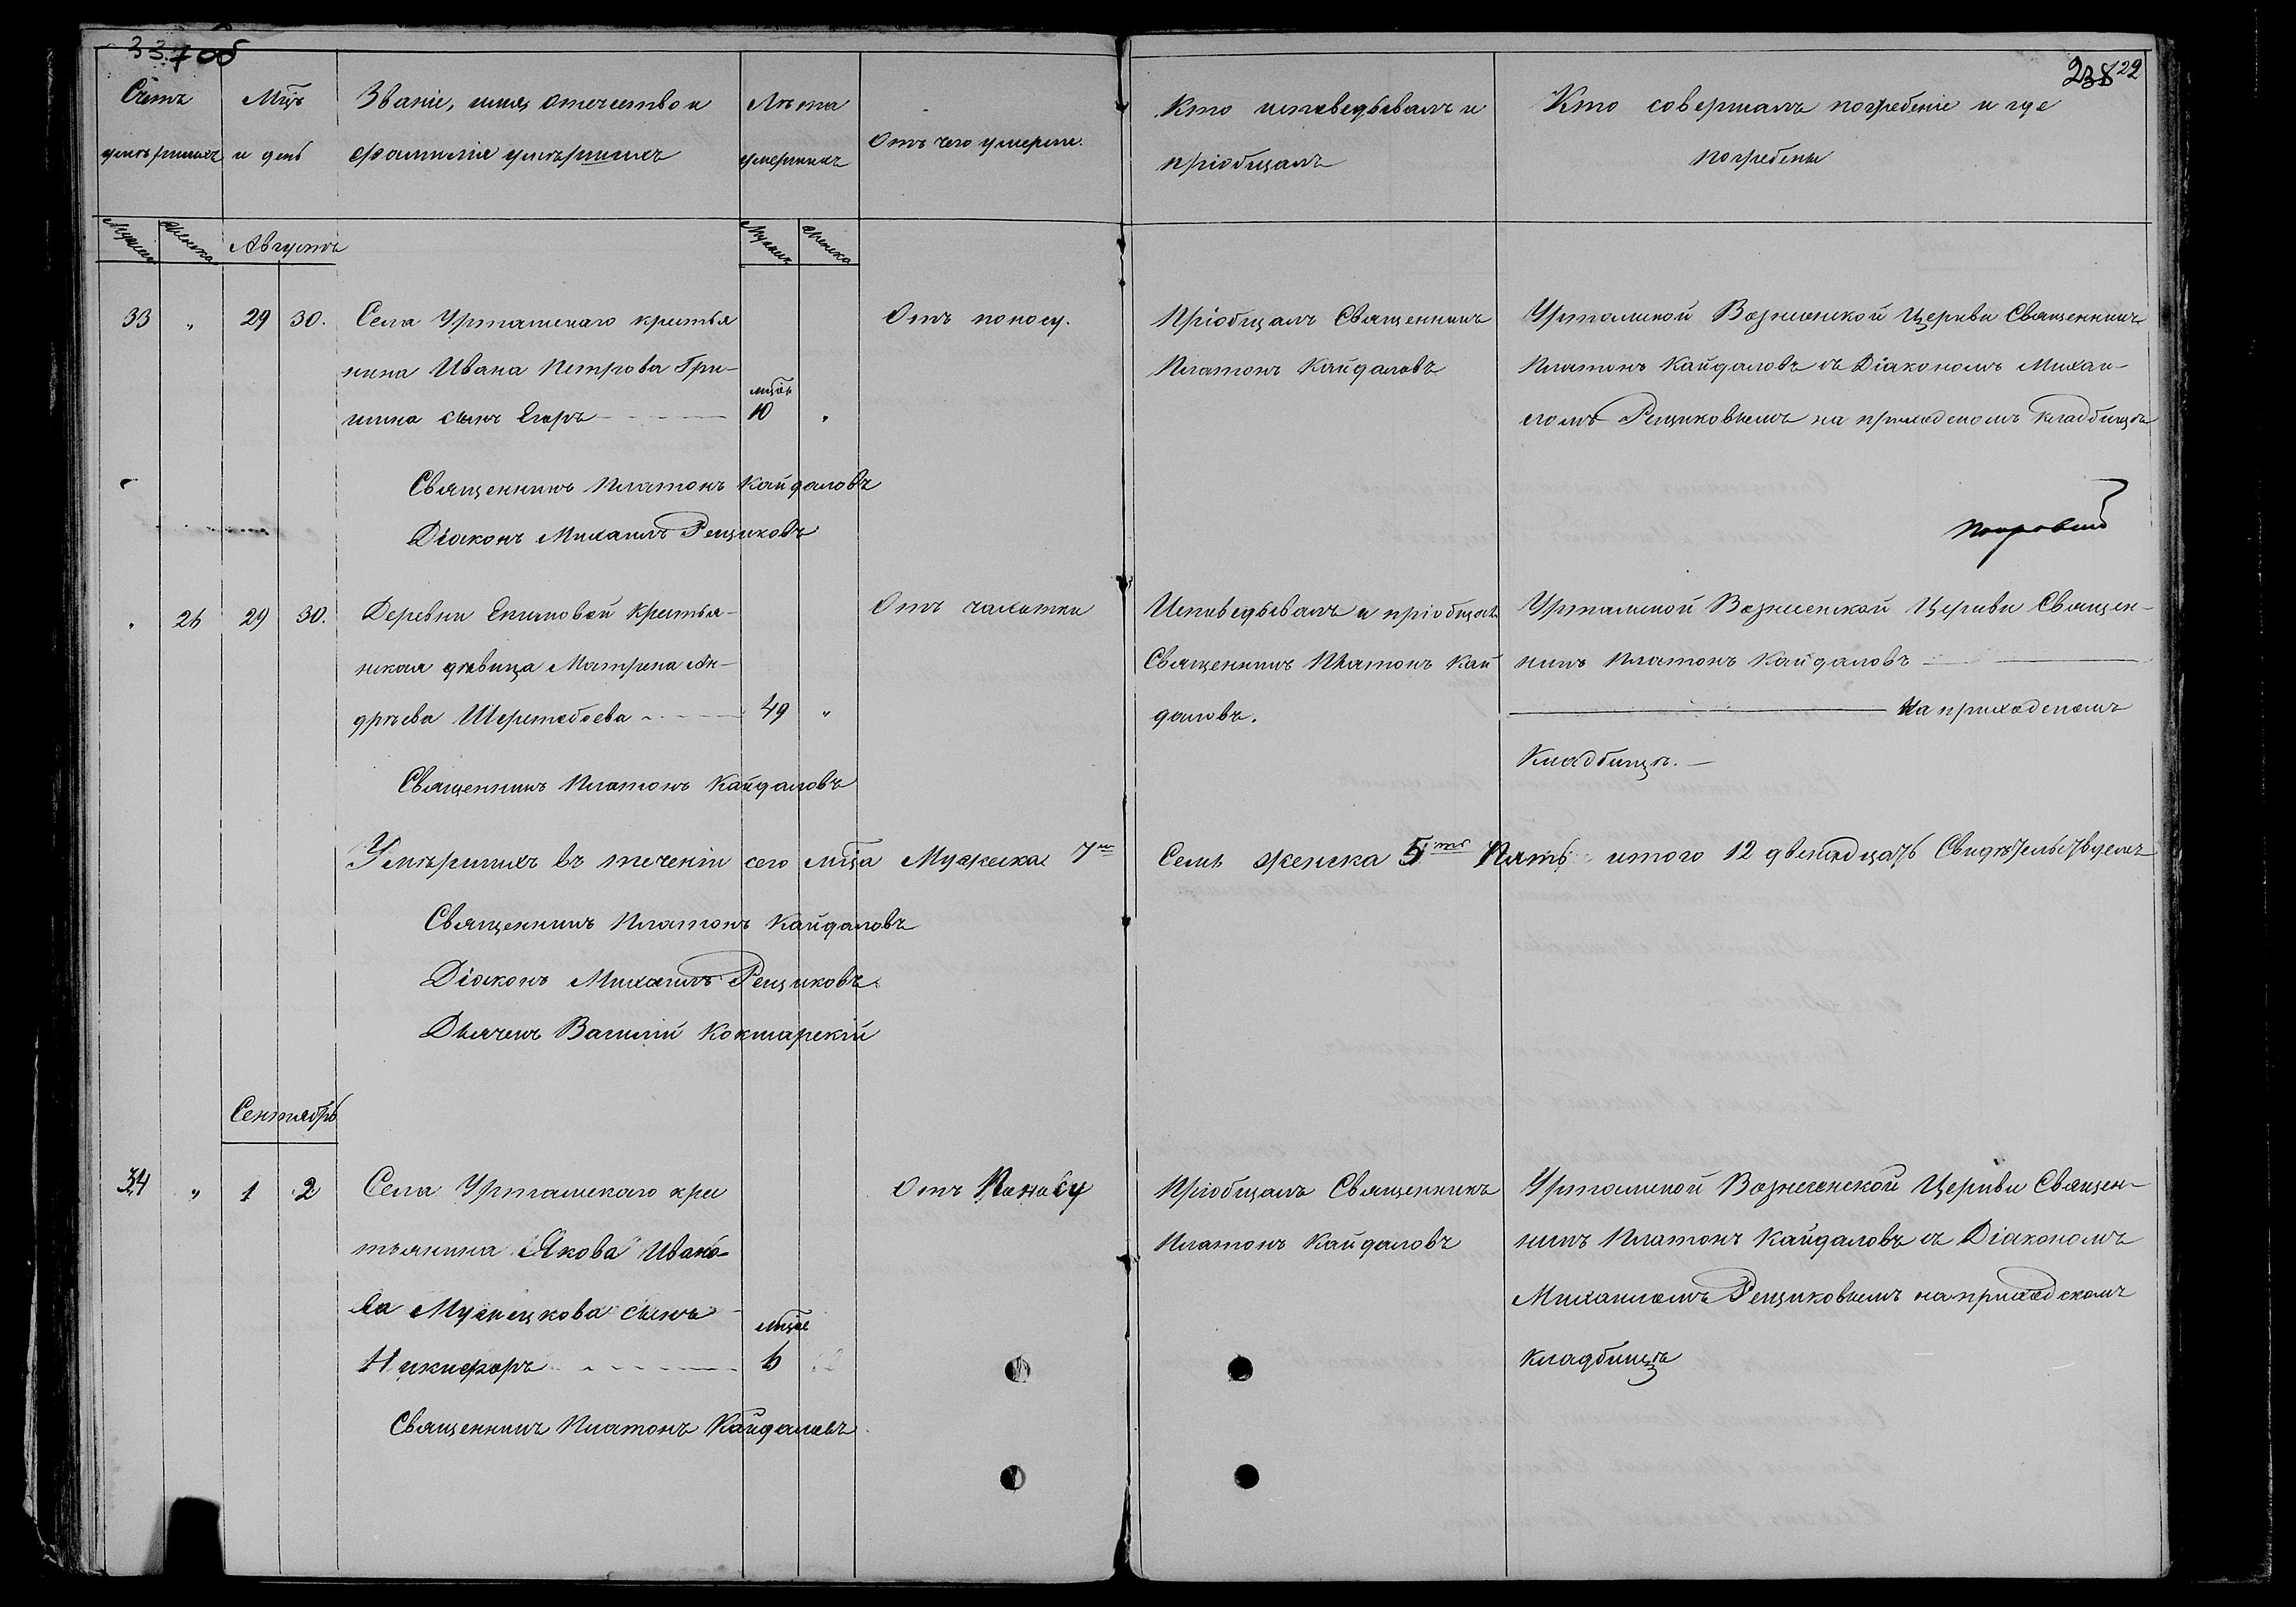 337об
238 22
Счетъ умѣршихъ
Мцъ и день
Званіе, имя, отечество и фамилія умѣршихъ
Лѣта умершихъ
Отъ чего умерли.
Кто исповедывалъ и пріобщалъ
Кто совершалъ погребеніе и где погребены
Мужеска Женска
Августъ
Мужеска Женска
33 " 29 30.
Села Уртамскаго крестья
нина Ивана Петрова Гри-
шина сынъ Егоръ
мцовъ
10 "
Отъ поносу.
Пріобщалъ Священникъ
Платонъ Кайдаловъ
Уртамской Вознесенской Церкви Священникъ
Платонъ Кайдаловъ съ Діакономъ Михаи-
ломъ Рещиковымъ на приходскомъ кладбищѣ
Священникъ Платонъ Кайдаловъ
Діаконъ Михаилъ Рещиковъ
" 26 29 30.
Деревни Екимовой крестья-
нская дѣвица Матрена Ан-
дрѣева Шереметова
49 "
Отъ чахотки
Исповедывалъ и пріобщалъ
Священникъ Платонъ Кай
даловъ.
Уртамской Вознесенской Церкви Священ-
никъ Платонъ Кайдаловъ
на приходскомъ
Кладбищѣ.
Священникъ Платонъ Кайдаловъ
Умѣршихъ въ теченіи сего мѣца Мужеска 7мь Семь женска 5ть Пять итого 12 двенадцать Свидѣтельствуемъ
Священникъ Платонъ Кайдаловъ
Діаконъ Михаилъ Рещиковъ
Дьячекъ Василій Кокшарскій
Сентябрь
34 " 1 2
Села Уртамскаго крес
тьянина Якова Ивано-
ва сынъ
Никифоръ
мцов
6
Отъ Поносу
Пріобщалъ Священникъ
Платонъ Кайдаловъ
Уртамской Вознесенской Церкви Священ-
никъ Платонъ Кайдаловъ съ Діакономъ
Михаиломъ Рещиковымъ на приходскомъ
кладбищѣ
Священникъ Платонъ Кайдаловъ